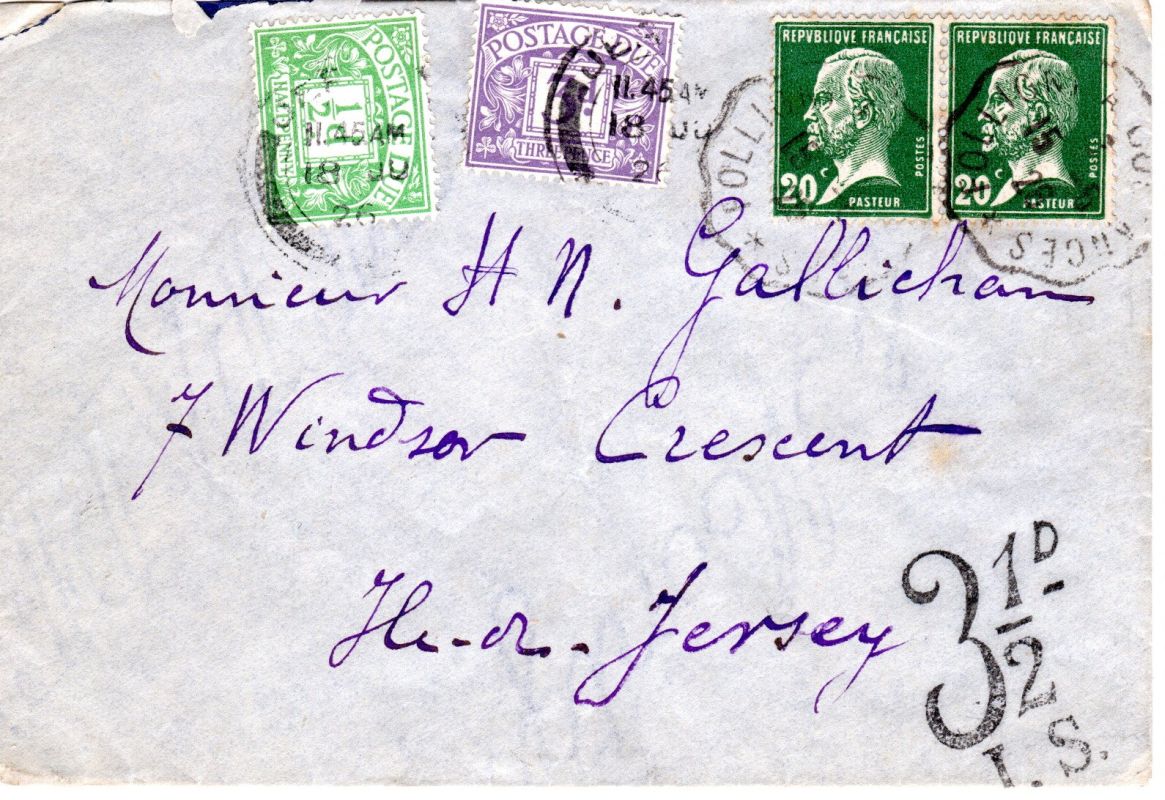 POSTAGE DUE
½D
HALFPENNY
11.45AM
18 JU
26
POSTAGE DUE
THREE PENCE
11.45AM
18 JU
2
REPVBLIQUE FRANÇAISE
20 c
POSTES
PASTEUR
REPVBLIQUE FRANÇAISE
20 c
POSTES
PASTEUR
Monsieur H N. Gallichan
7 Windsor Crescent
Ile-de-Jersey
3 1/2 D
I.S.